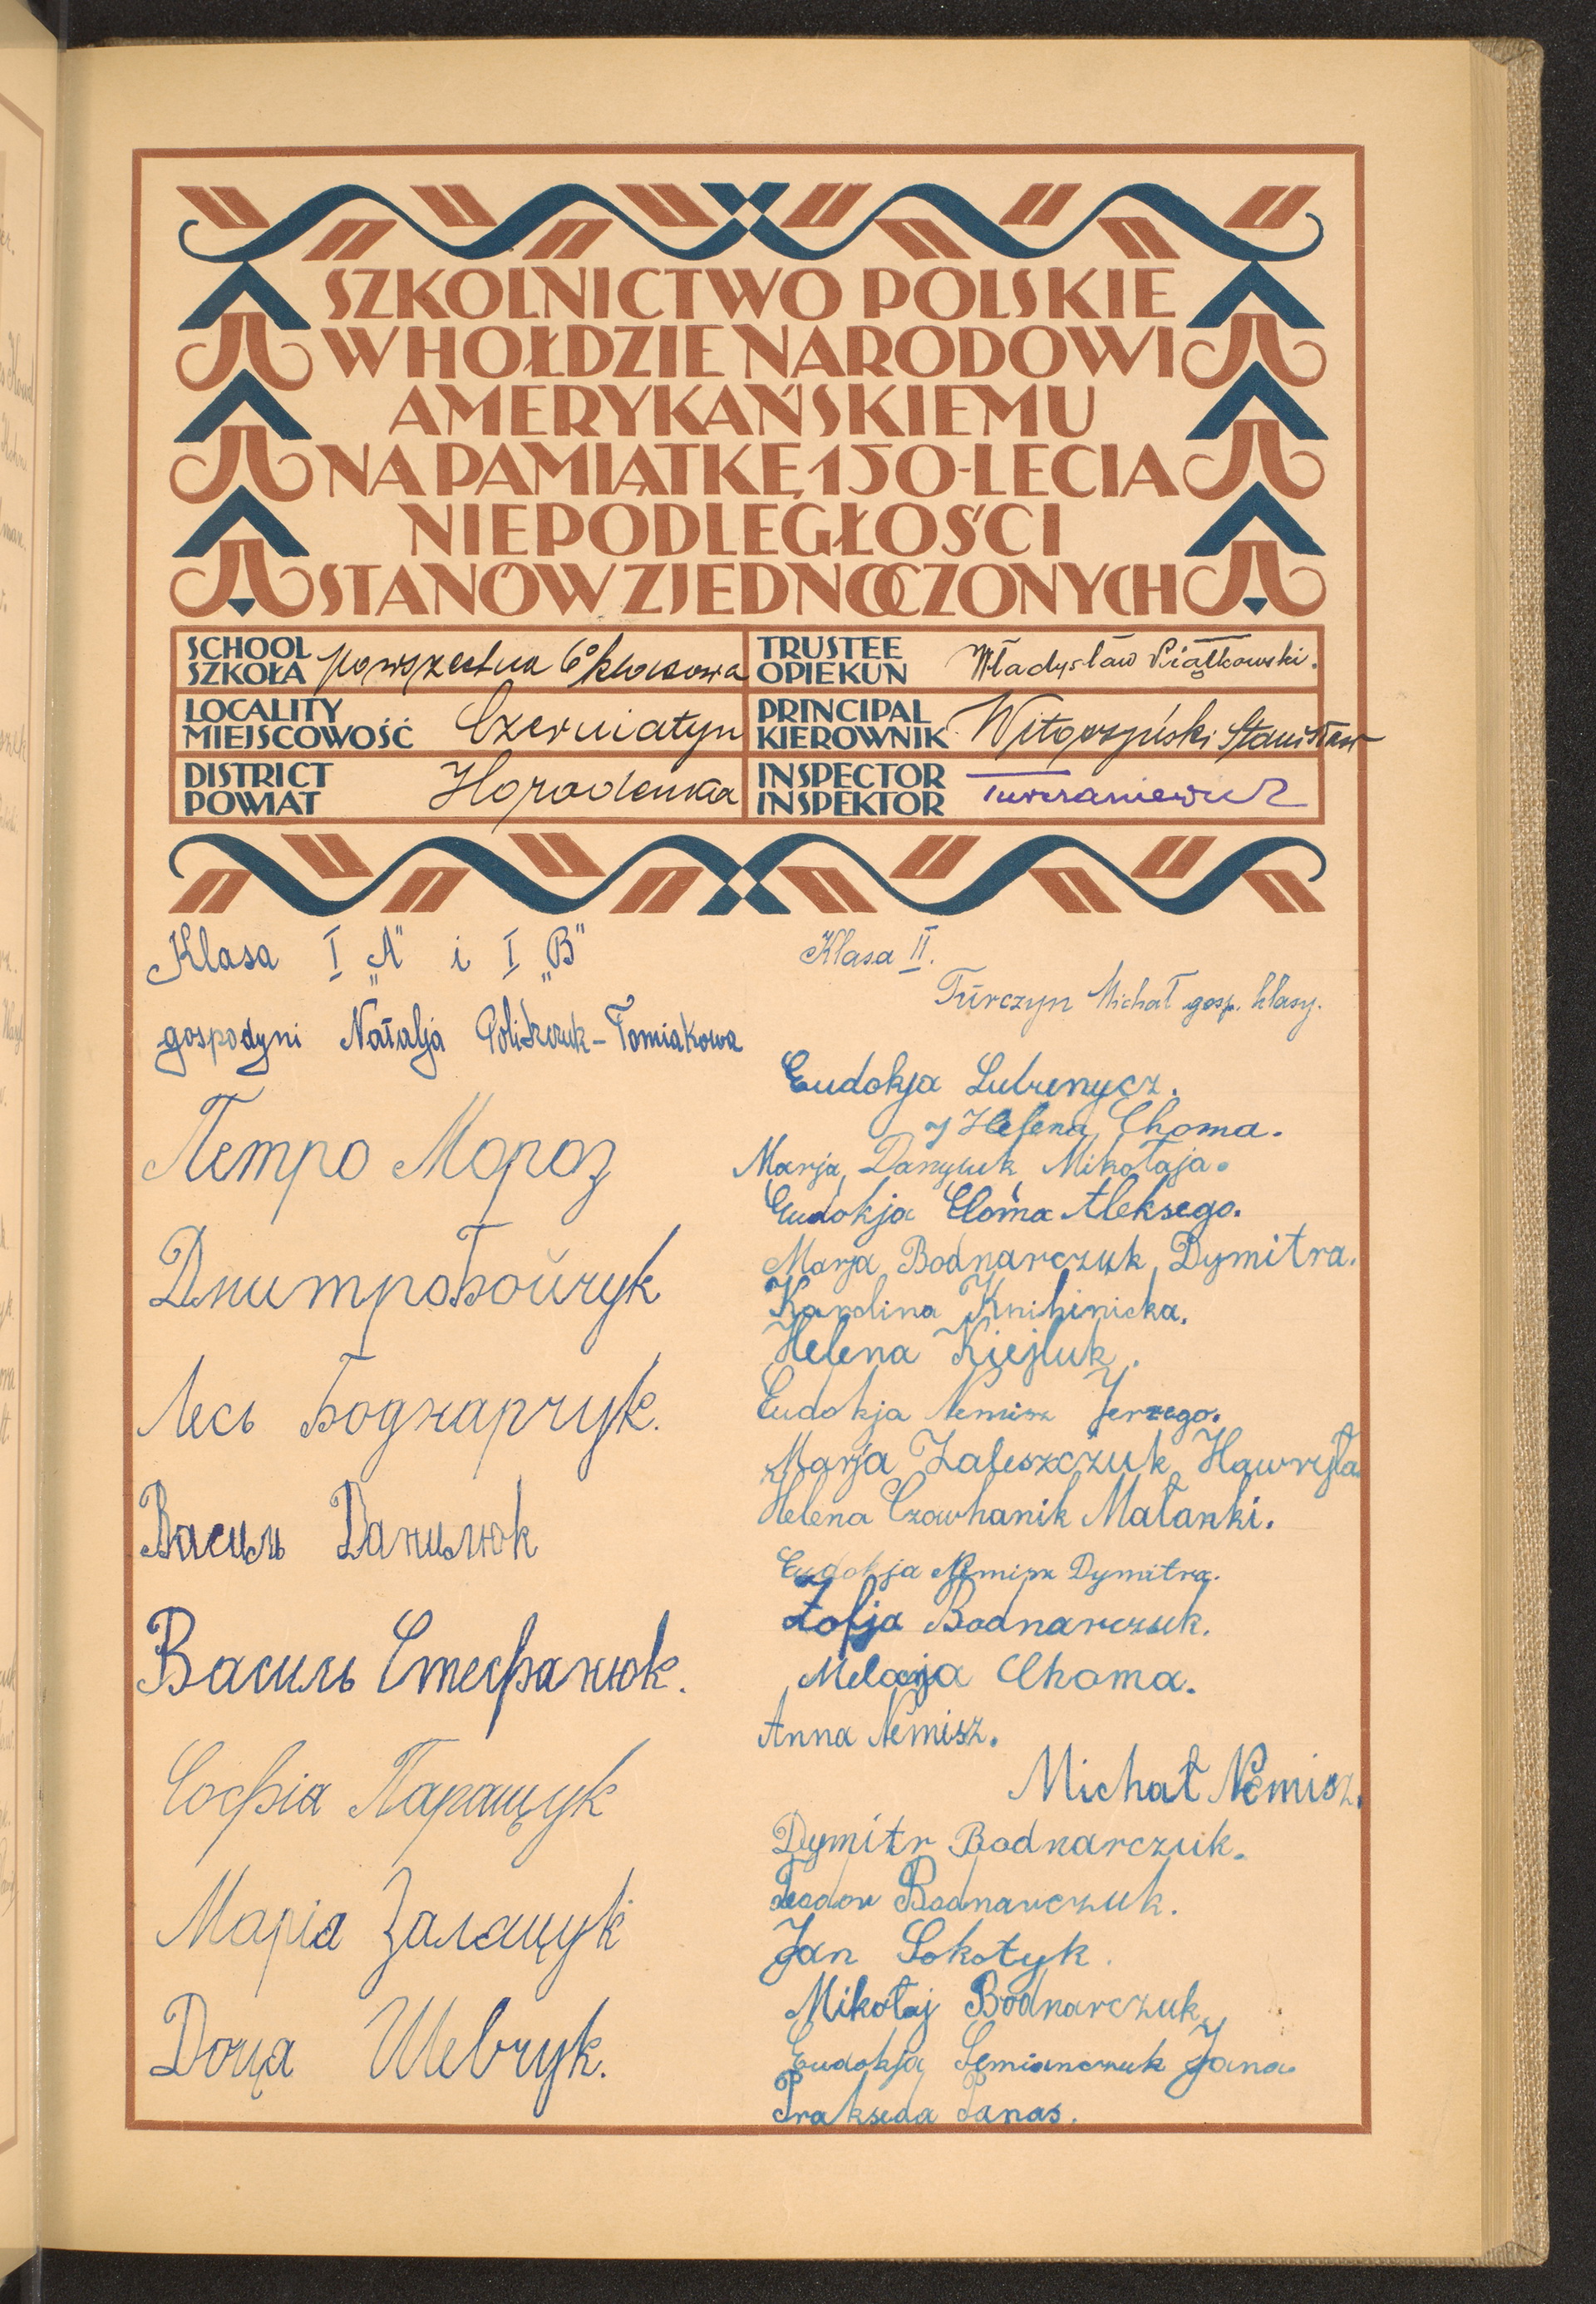 SZKOLNICTWO POLSKIE
W HOŁDZIE NARODOWI
AMERYKAŃSKIEMU
NA PAMIĄTKĘ 150-LECIA
NIEPODLEGŁOŚCI
STANÓW ZJEDNOCZONYCH
SCHOOL
SZKOŁA powszechna 6º klasowa
TRUSTEE
OPIEKUN Władysław Piątkowski.
LOCALITY
MIEJSCOWOŚĆ Czerniatyn
PRINCIPAL
KIEROWNIK Witoszyński Stanisław
DISTRICT
POWIAT Horodenka
INSPECTOR
INSPEKTOR
Klasa I „A" i I „B"
gospodyni Natalja Poliszczuk-Tomiakowa
Петро Мороз
Дмитро Бойчук
Лесь Боднарчук.
Василь Данилюк
Василь Стефанюк.
Софія Паращук
Марія Залащук
Доця Шевчук.
Klasa II.
Turczyn Michał gosp. klasy.
Eudokja Lubenycz.
Helena Choma.
Marja Danyluk Mikołaja.
Eudokja Choma Aleksego.
Marja Bodnarczuk Dymitra.
Karolina Knihinicka.
Helena Kiejluk.
Eudokja Nemisz Jerzego.
Marja Zaleszczuk Hawryła
Helena Czowhanik Małanki.
Eudokja Nemisz Dymitra.
Zofja Bodnarczuk.
Melanja Choma.
Anna Nemisz.
Michał Nemisz.
Dymitr Bodnarczuk.
Teodor Bodnarczuk.
Jan Sokołyk.
Mikołaj Bodnarczuk
Eudokja Semianczuk Jana
Prakseda Panas.